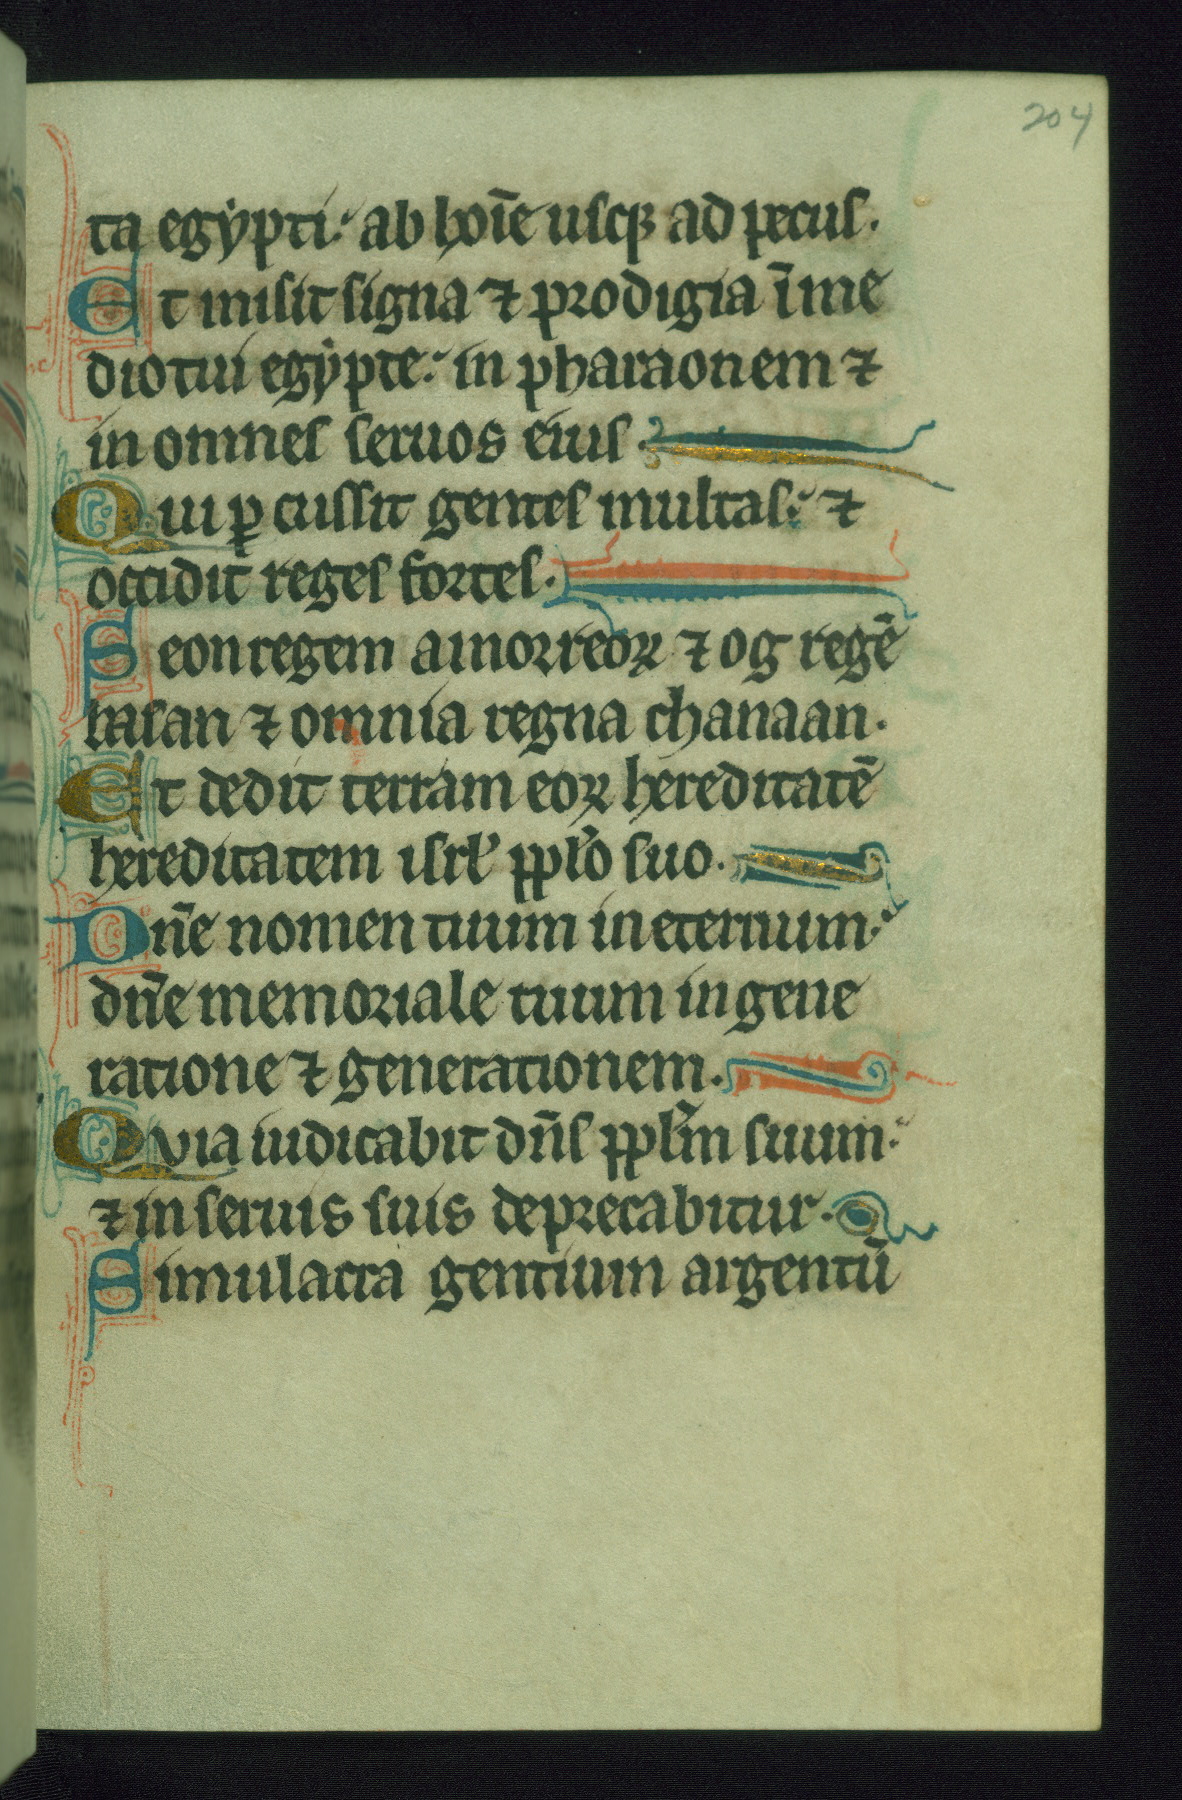 204
ta egẏpti. ab hoīe uſqꝫ ad pecuſ.
Et miſit ſigna ⁊ prodigia ī me
dio tui egẏpte. in pharaonem ⁊
in omneſ ſeruos eiuſ.
Qui ꝑcuſſit genteſ multaſ. ⁊
occidit regeſ forteſ.
Seon regem amorreoꝝ ⁊ og regē
baſan ⁊ omnia regna chanaan.
Et dedit terram eoꝝ hereditatē
hereditatem iſrł pplo̅ ſuo.
Dn̄e nomen tuum in eternum.
dn̄e memoriale tuum in gene
ratione ⁊ generationem.
Quia iudicabit dn̄ſ ppl̅m ſuum.
⁊ in ſeruis ſuis deprecabitur.
Simulacra gentium argentū